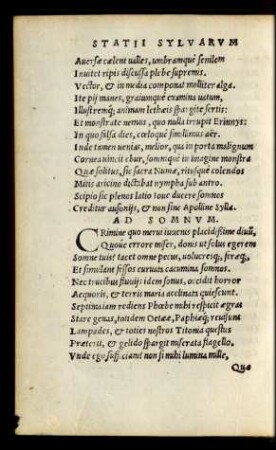 STATII SYLVARVM
Auersæ cælent ualles, umbramque senilem
Inuitet ripis discussa plebe supremis.
Vector, & in media componat molliter alga.
Ite pij manes, graiumque examina uatum,
Illustremq; animam lethæis spargite sertis:
Et monstrate nemus, quo nulli irrupit Erinnys:
In quo falsa dies, cœloque simillimus aër.
Inde tamen uenias, melior, qua in porta malignum
Cornea uincit ebur, somnique in imagine monstra
Quæ solitus, sic sacra Numæ, ritusque colendos
Mitis aricino dictabat nympha sub antro.
Scipio sic plenos latio Ioue ducere somnos
Creditur ausonijs, & non sine Apolline Sylla.
AD SOMNVM.
CRimine quo merui iuuenis placidissime diuũ,
Quoúe errore miser, donis ut solus egerem
Somne tuis? tacet omne pecus, uolucresq;, feræq;,
Et simulant fessos curuata cacumina somnos.
Nec trucibus fluuijs idem sonus, occidit horror
Aequoris, & terris maria acclinata quiescunt.
Septimæ iam rediens Phœbe mihi respicit ægras
Stare genas, totidem Oetææ, Paphiæq; reuisunt
Lampades, & toties nostros Titonia questus
Præterit, & gelido spargit miserata flagello.
Vnde ego sufficiam? non si mihi lumina mille,
Quæ